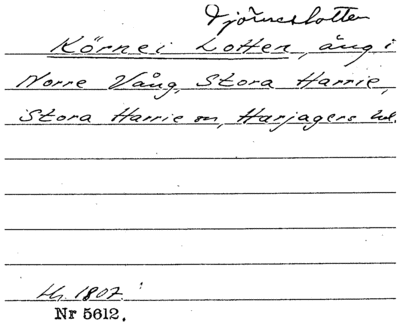 Djörneslotten
Körnei Lotten, äng i
Norre Vång, Stora Harrie,
Stora Harrie sn, Harjagers hd.
LH. 1807.
Nr 5612.